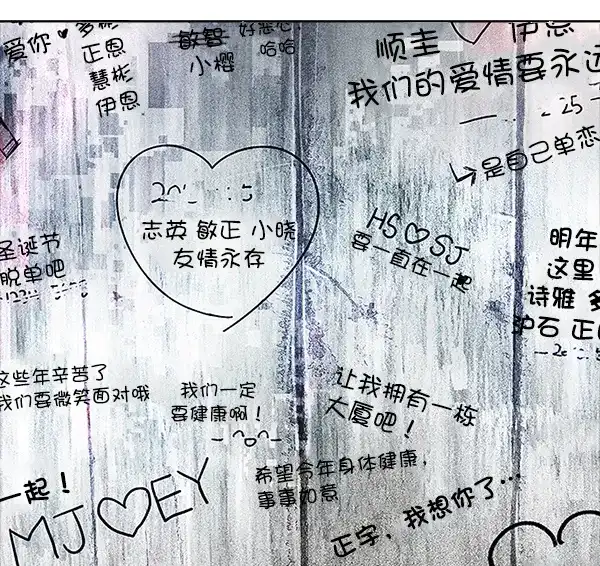 爱你
正恩
慧彬
伊恩
敏智
小樱
哈哈
顺圭
伊恩
我们的爱情要永远
25
是自己单恋
志英 敏正 小晓
友情永存
HS♡SJ
要一直在一起
圣诞节
脱单吧
明年
这里
诗雅 多
沪石 正
这些年辛苦了
我们要微笑面对哦
我们一定
要健康啊！
让我拥有一栋
大厦吧！
一起！
MJ♡EY
希望今年身体健康，
事事如意
正字，我想你了…